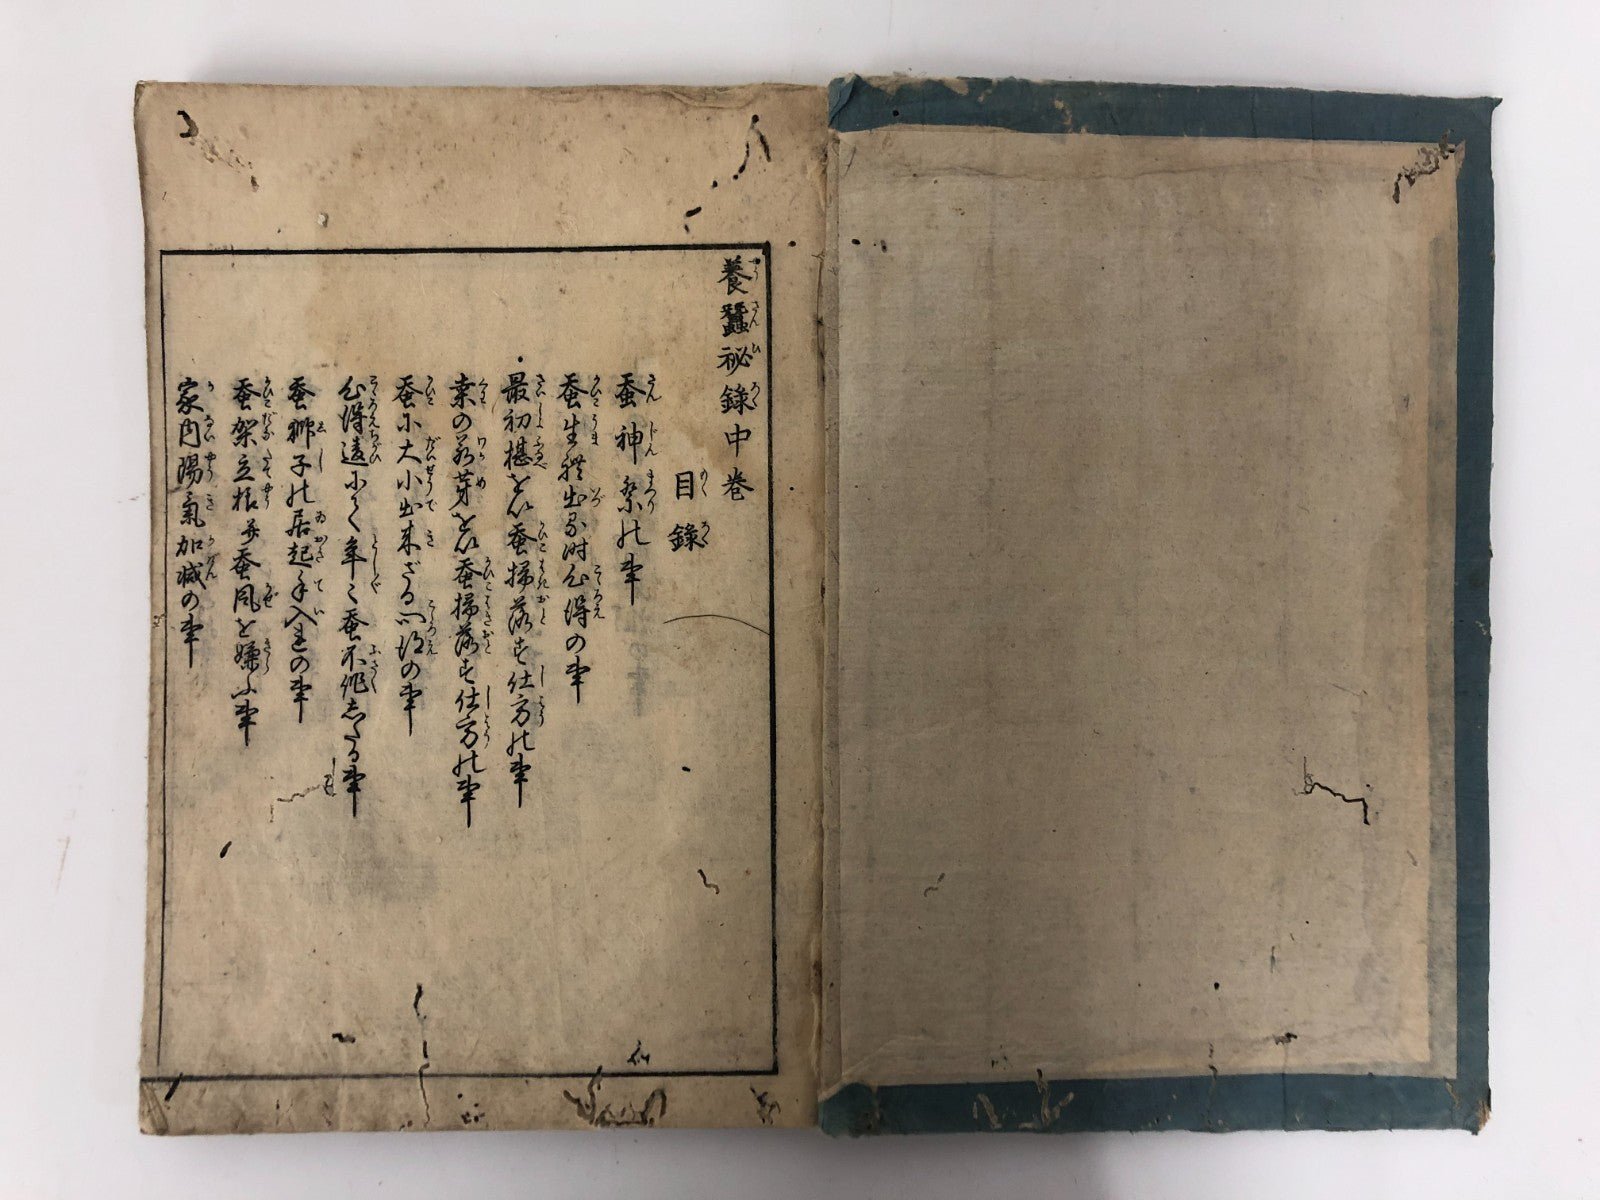 養蠶祕錄中巻
目錄
蚕神祭の事
蚕生れ出る時心得の事
最初椹を以蚕掃落す仕方の事
桒の若芽を以蚕掃落す仕方の事
蚕に大小出来ざる心得の事
心得違にて年〻蚕不作したる事
蚕獅子の居起手入れの事
蚕架立様并蚕風を嫌ふ事
家内陽氣加減の事